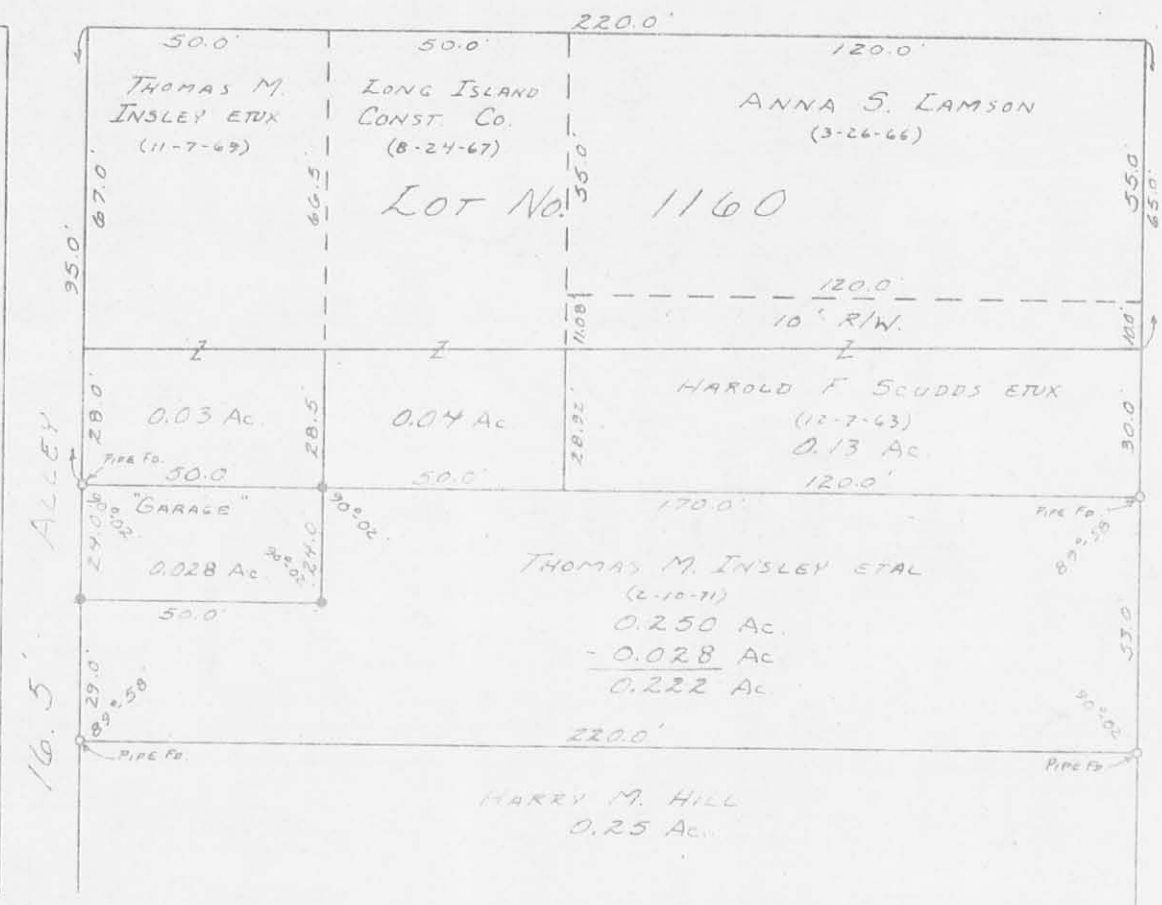 220.0'
50.0'
50.0'
120.0'
THOMAS M.
INSLEY ETUX
(11-7-69)
LONG ISLAND
CONST. CO.
(8-24-67)
ANNA S. LAMSON
(3-26-66)
67.0'
66.5'
55.0'
55.0'
65.0'
95.0'
LOT NO. 1160
120.0'
10' R/W.
11.08'
10.0'
Z
Z
Z
28.0'
0.03 Ac.
28.5'
0.04 Ac.
28.92'
HAROLD F. SCUDDS ETUX
(12-7-63)
0.13 Ac.
30.0'
PIPE FD.
50.0
50.0'
120.0'
170.0'
PIPE FD
"GARAGE"
24.0'
90°-02'
0.028 Ac.
90°-02'
24.0
90°-02'
89°-58'
50.0'
THOMAS M. INSLEY ETAL
(2-10-71)
0.250 Ac.
- 0.028 Ac
0.222 Ac.
53.0'
29.0'
89°-58'
90°-02'
220.0'
PIPE FD.
PIPE FD
16.5' ALLEY
HARRY M. HILL
0.25 Ac.